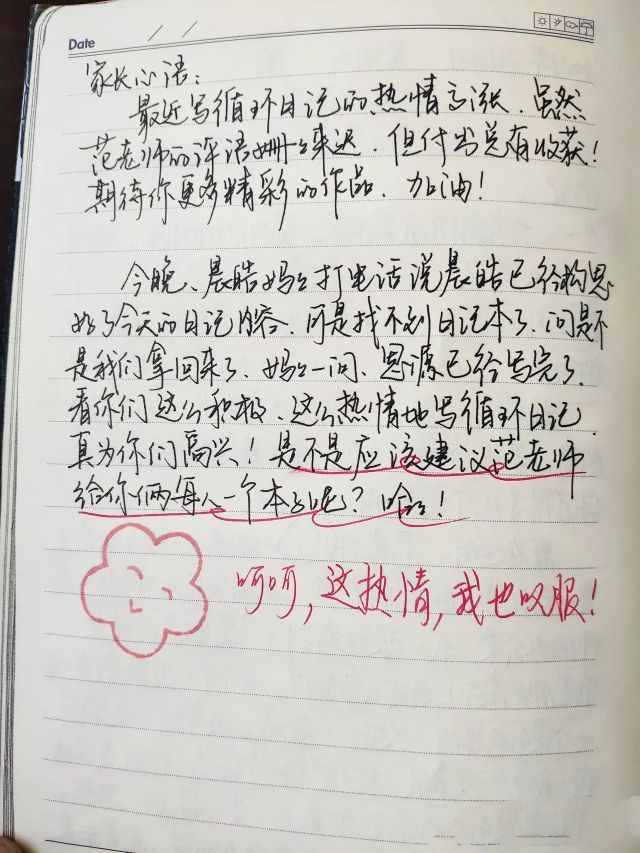 Date
家长心语：
最近写循环日记的热情高涨．虽然
范老师的评语姗姗来迟．但付出总有收获！
期待你更多精彩的作品．加油！
今晚、晨皓妈妈打电话说晨皓已经构思
好了今天的日记内容．可是找不到日记本了．问是不
是我们拿回来了．妈妈一问、思源已经写完了．
看你们这么积极、这么热情地写循环日记．
真为你们高兴！是不是应该建议范老师
给你俩每人一个本子呢？哈哈！
呵呵，这热情，我也叹服！